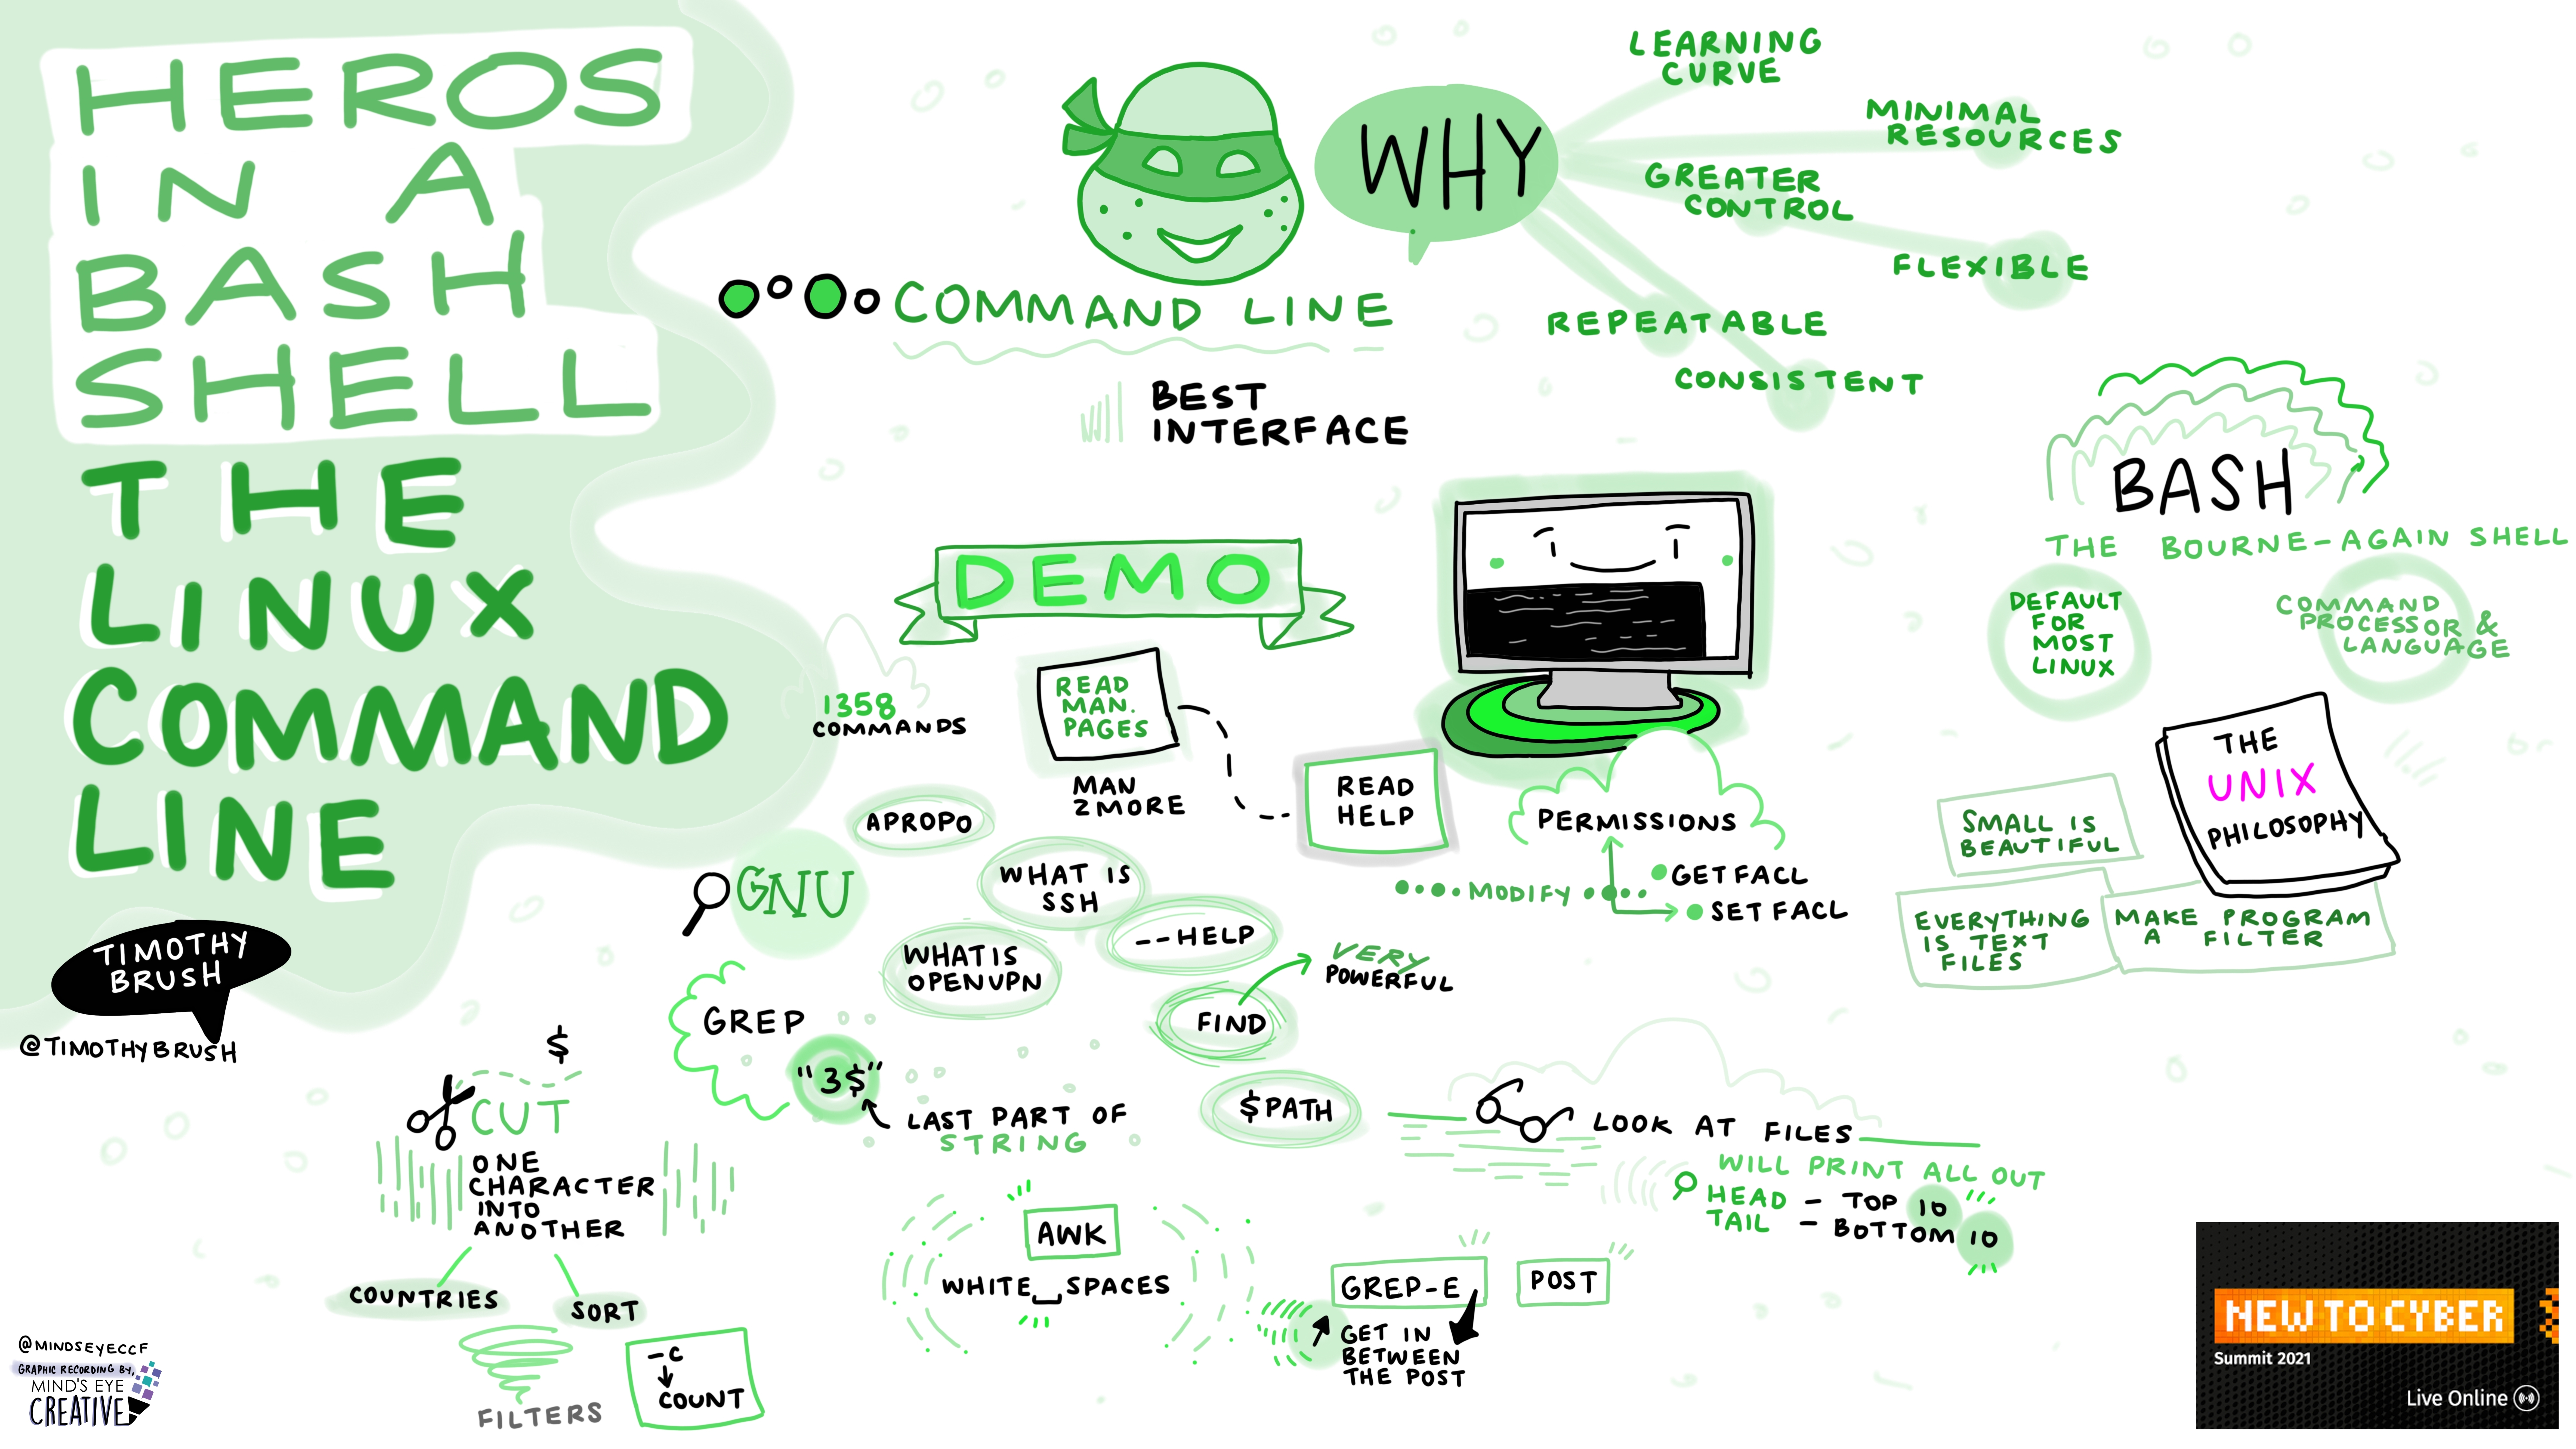 HEROS
IN A
BASH
SHELL
THE
LINUX
COMMAND
LINE
TIMOTHY
BRUSH
@TIMOTHYBRUSH
COMMAND LINE
BEST
INTERFACE
WHY
LEARNING
CURVE
MINIMAL
RESOURCES
GREATER
CONTROL
FLEXIBLE
REPEATABLE
CONSISTENT
BASH
THE BOURNE-AGAIN SHELL
DEFAULT
FOR
MOST
LINUX
COMMAND
PROCESSOR &
LANGUAGE
THE
UNIX
PHILOSOPHY
SMALL IS
BEAUTIFUL
EVERYTHING
IS TEXT
FILES
MAKE PROGRAM
A FILTER
DEMO
1358
COMMANDS
READ
MAN.
PAGES
MAN
2MORE
READ
HELP
PERMISSIONS
MODIFY
GETFACL
SETFACL
APROPO
GNU
WHAT IS
SSH
WHATIS
OPENVPN
--HELP
FIND
VERY
POWERFUL
$PATH
GREP
"3$"
LAST PART OF
STRING
$
CUT
ONE
CHARACTER
INTO
ANOTHER
COUNTRIES
SORT
FILTERS
-C
COUNT
AWK
WHITE SPACES
LOOK AT FILES
WILL PRINT ALL OUT
HEAD - TOP 10
TAIL - BOTTOM 10
GREP-E
POST
GET IN
BETWEEN
THE POST
@MINDSEYECCF
GRAPHIC RECORDING BY,
MIND'S EYE
CREATIVE
NEW TO CYBER
Summit 2021
Live Online